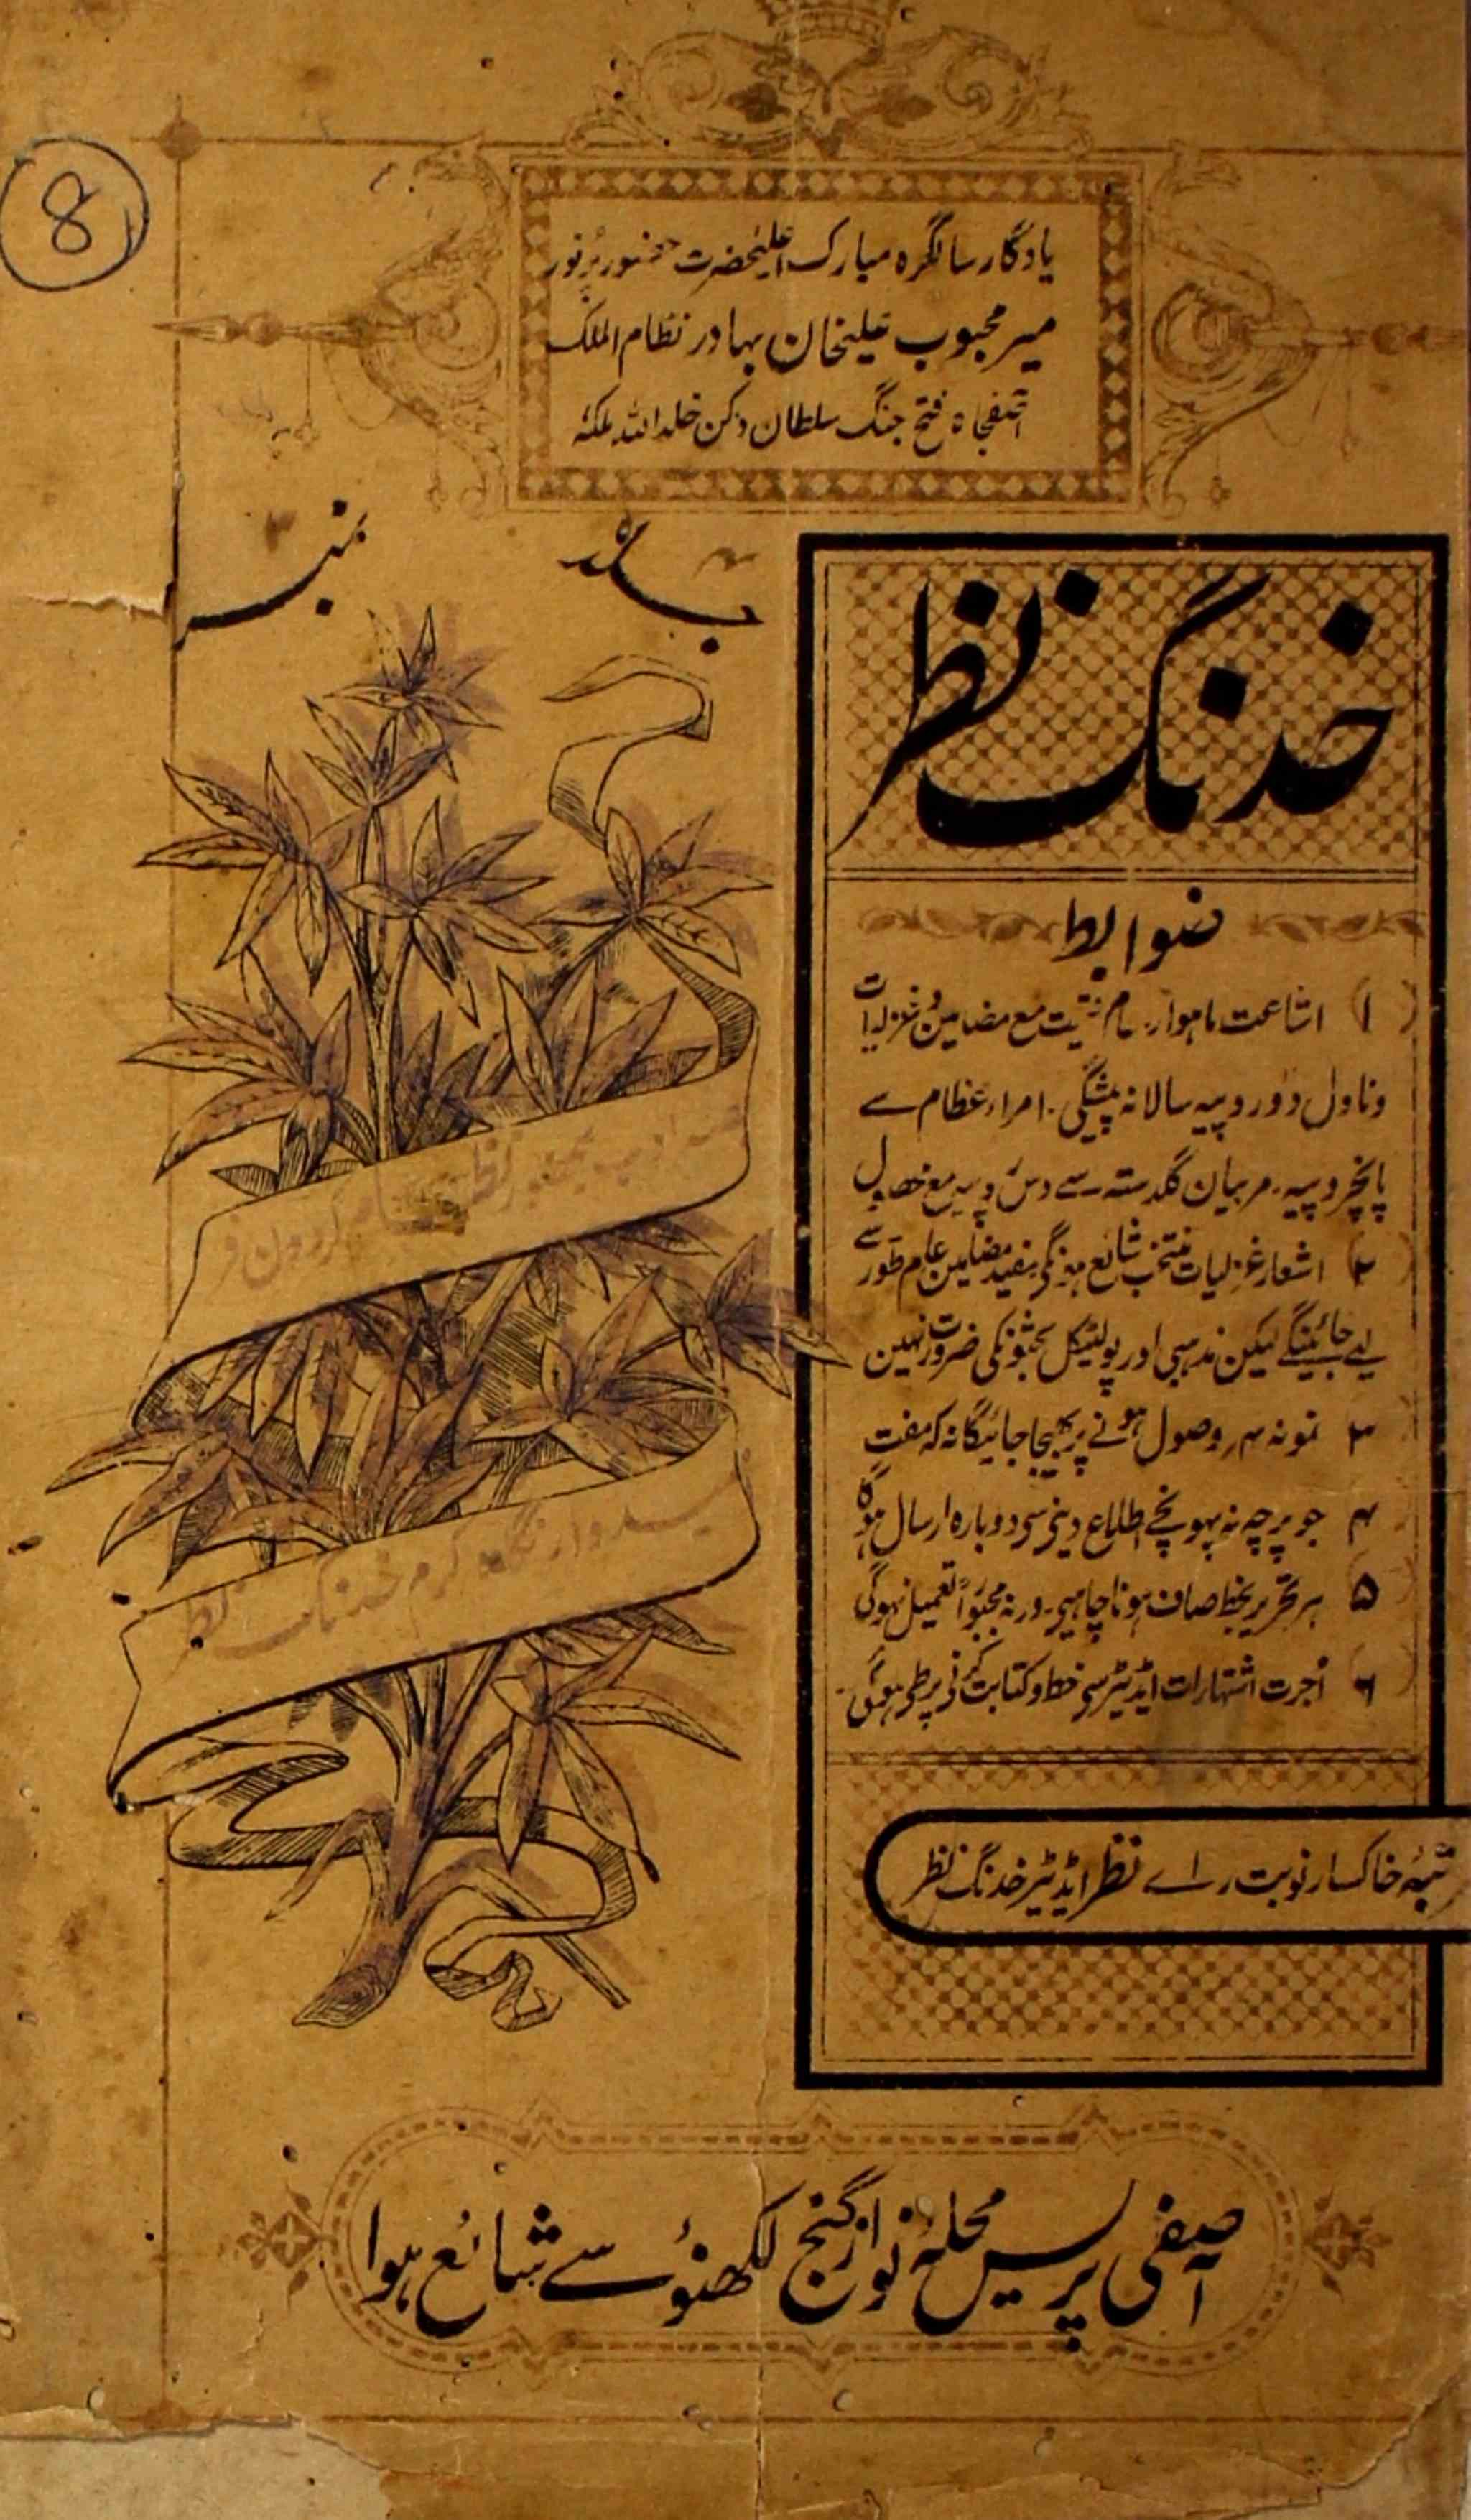 8
یادگار سالگرہ مبارک اعلیٰحضرت حضور پُرنور
میر محبوب علیخان بہادر نظام الملک
آصفجاہ فتح جنگ سلطان دکن خلد اللہ ملکہٗ
جلد
نمبر ۳
خدنگ نظر
ضوابط
(۱) اشاعت ماہوار۔ عام قیمت مع مضامین و غزلیات
و ناول دو روپیہ سالانہ پیشگی۔ امراء عظام سے
پانچروپیہ۔ مربیان گلدستہ سے دس روپیہ مع محصول
(۲) اشعار غزلیات منتخب شائع ہونگی مفید مضامین عام طور سے
لیے جائینگے لیکن مذہبی اور پولیٹکل بحثونکی ضرورت نہین
۳ نمونہ ۴؍ وصول ہونے پر بھیجا جائیگا نہ کہ مفت
۴ جو پرچہ نہ پہونچے اطلاع دینی سی دوبارہ ارسال ہوگا
(۵ ہر تحریر بخط صاف ہونا چاہیے۔ ورنہ مجبوراً تعمیل نہوگی
(۶ اُجرت اشتہارات اڈیٹر سی خط و کتابت کرنے پر طی ہوگی۔
خاکسار نوبت راے نظر اڈیٹر خدنگ نظر
نگاہ کرم خدنگ نظر
آصفی پریس محلہ نوازگنج لکھنؤ سے شائع ہوا